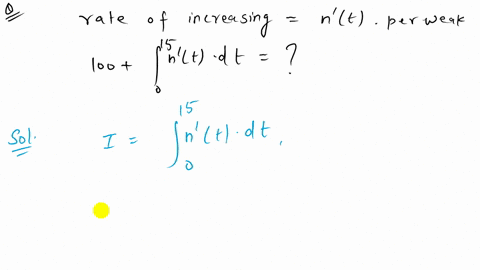 Q rate of increasing = n'(t). per weak
100 + ∫₀¹⁵ n'(t)·dt = ?
Sol. I = ∫₀¹⁵ n'(t)·dt,